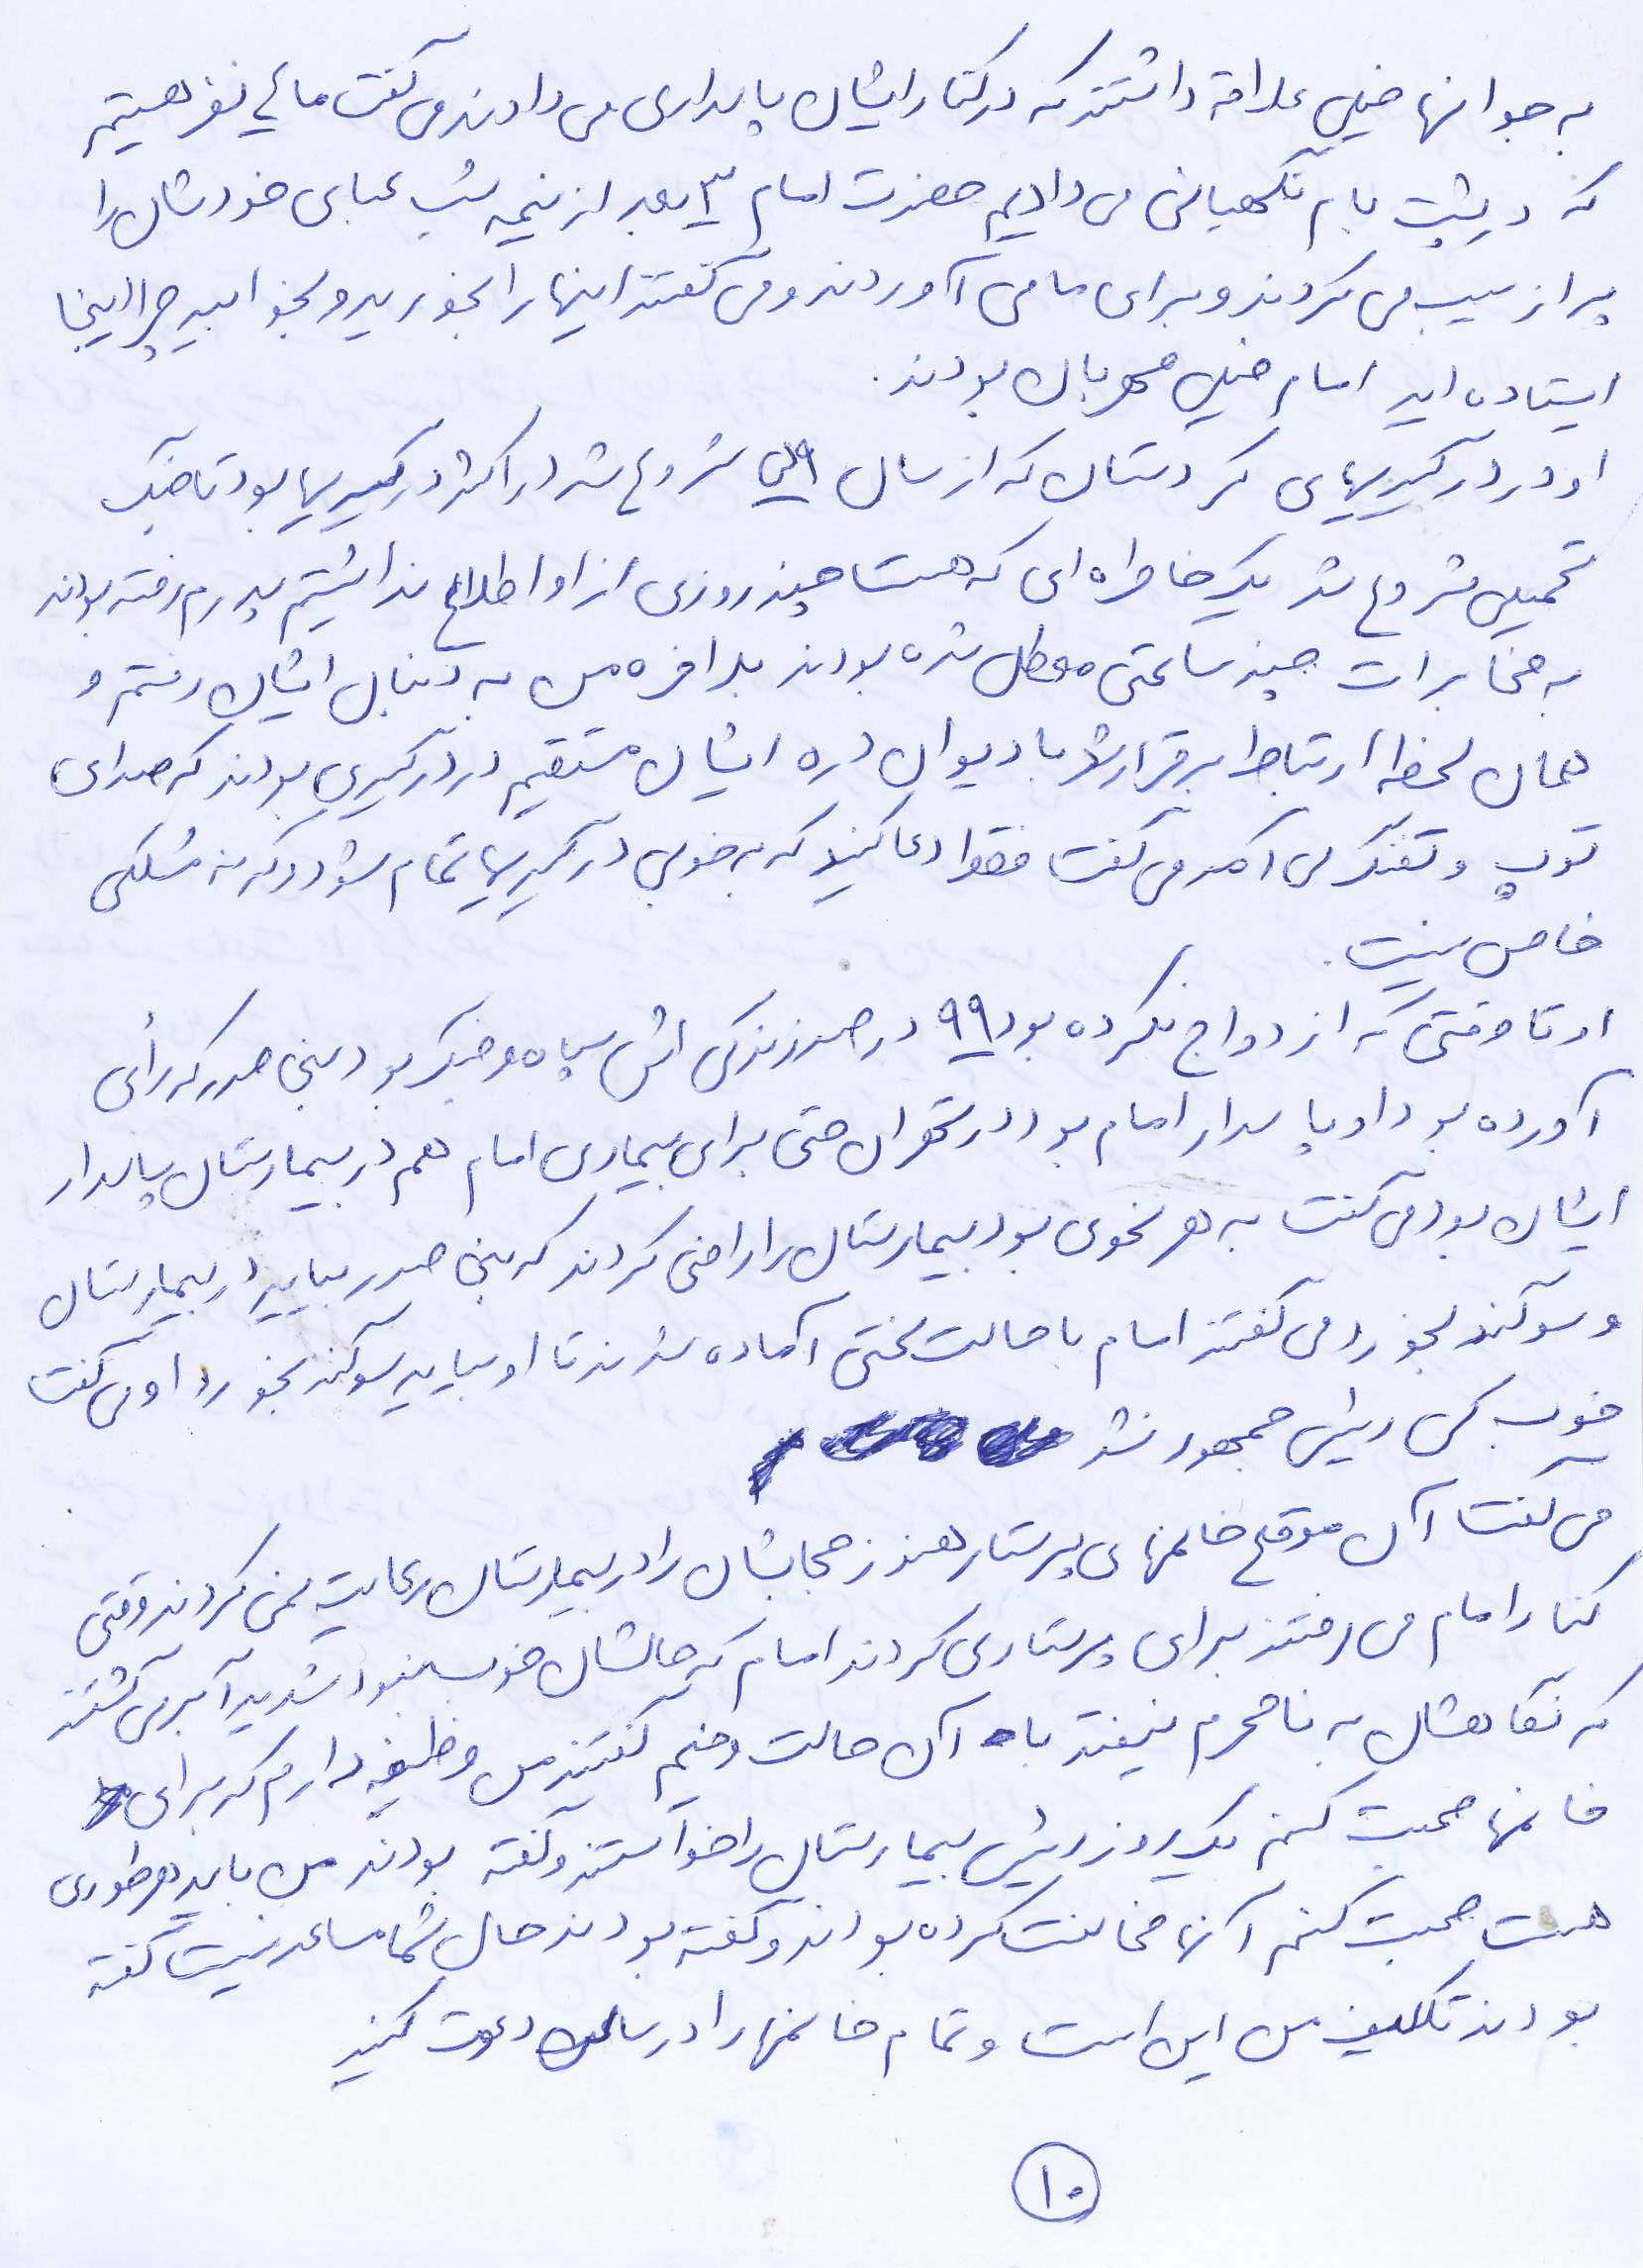 به جوانها خیلی علاقه داشتند که در کنار ایشان پاسداری می دادند می گفت ما ی نفر هستیم
که در پشت بام نگهبانی می دادیم حضرت امام ۳ بعد از نیمه شب عبای خودشان را
پر از سیب می کردند و برای ما می آوردند و می گفتند اینها را بخورید و بخوابید چرا اینجا
ایستاده اید امام خیلی مهربان بودند.
او در درگیریهای کردستان که از سال شروع شد در اکثر درگیریها بود تا جنگ
تحمیلی شروع شد یک خاطره ای که هست چند روزی از او اطلاع نداشتیم پدرم رفته بودند
به مخابرات چند ساعتی معطل شده بودند بلاخره من به دنبال ایشان رفتم و
همان لحظه ارتباط برقرار شد با دیوان دره ایشان مستقیم در درگیری بودند که صدای
توپ و تفنگ می آمد می گفت فقط دعا کنید که به خوبی درگیریها تمام شود و گر نه مشکلی
خاص نیست.
او تا وقتی که ازدواج نکرده بود ۹۹ درصد زندگی اش سپاه و جنگ بود بنی صدر که رأی
آورده بود او پاسدار امام بود در تهران حتی برای بیماری امام هم در بیمارستان پاسدار
ایشان بود می گفت به هر نحوی بود بیمارستان را راضی کردند که بنی صدر بیاید در بیمارستان
و سوگند بخورد می گفتند امام با حالت سختی آماده شدند تا او بیاید سوگند بخورد او می گفت
خوب کسی رئیس جمهور نشد
می گفت آن موقع خانمهای پرستار هنوز حجابشان را در بیمارستان رعایت نمی کردند وقتی
کنار امام می رفتند برای پرستاری کردند امام که حالشان خوب نبود شدید آ بر می گشتند
که نگاهشان به نامحرم نیفتد با آن حالت وخیم گفتند من وظیفه دارم که برای
خانمها صحبت کنم یک روز رئیس بیمارستان را خواستند و گفته بودند من باید هر طوری
هست صحبت کنم آنها مخالفت کرده بودند و گفته بودند حال شما مساعد نیست گفته
بودند تکلیف من این است و تمام خانمها را در سالن دعوت کنید
۱۰